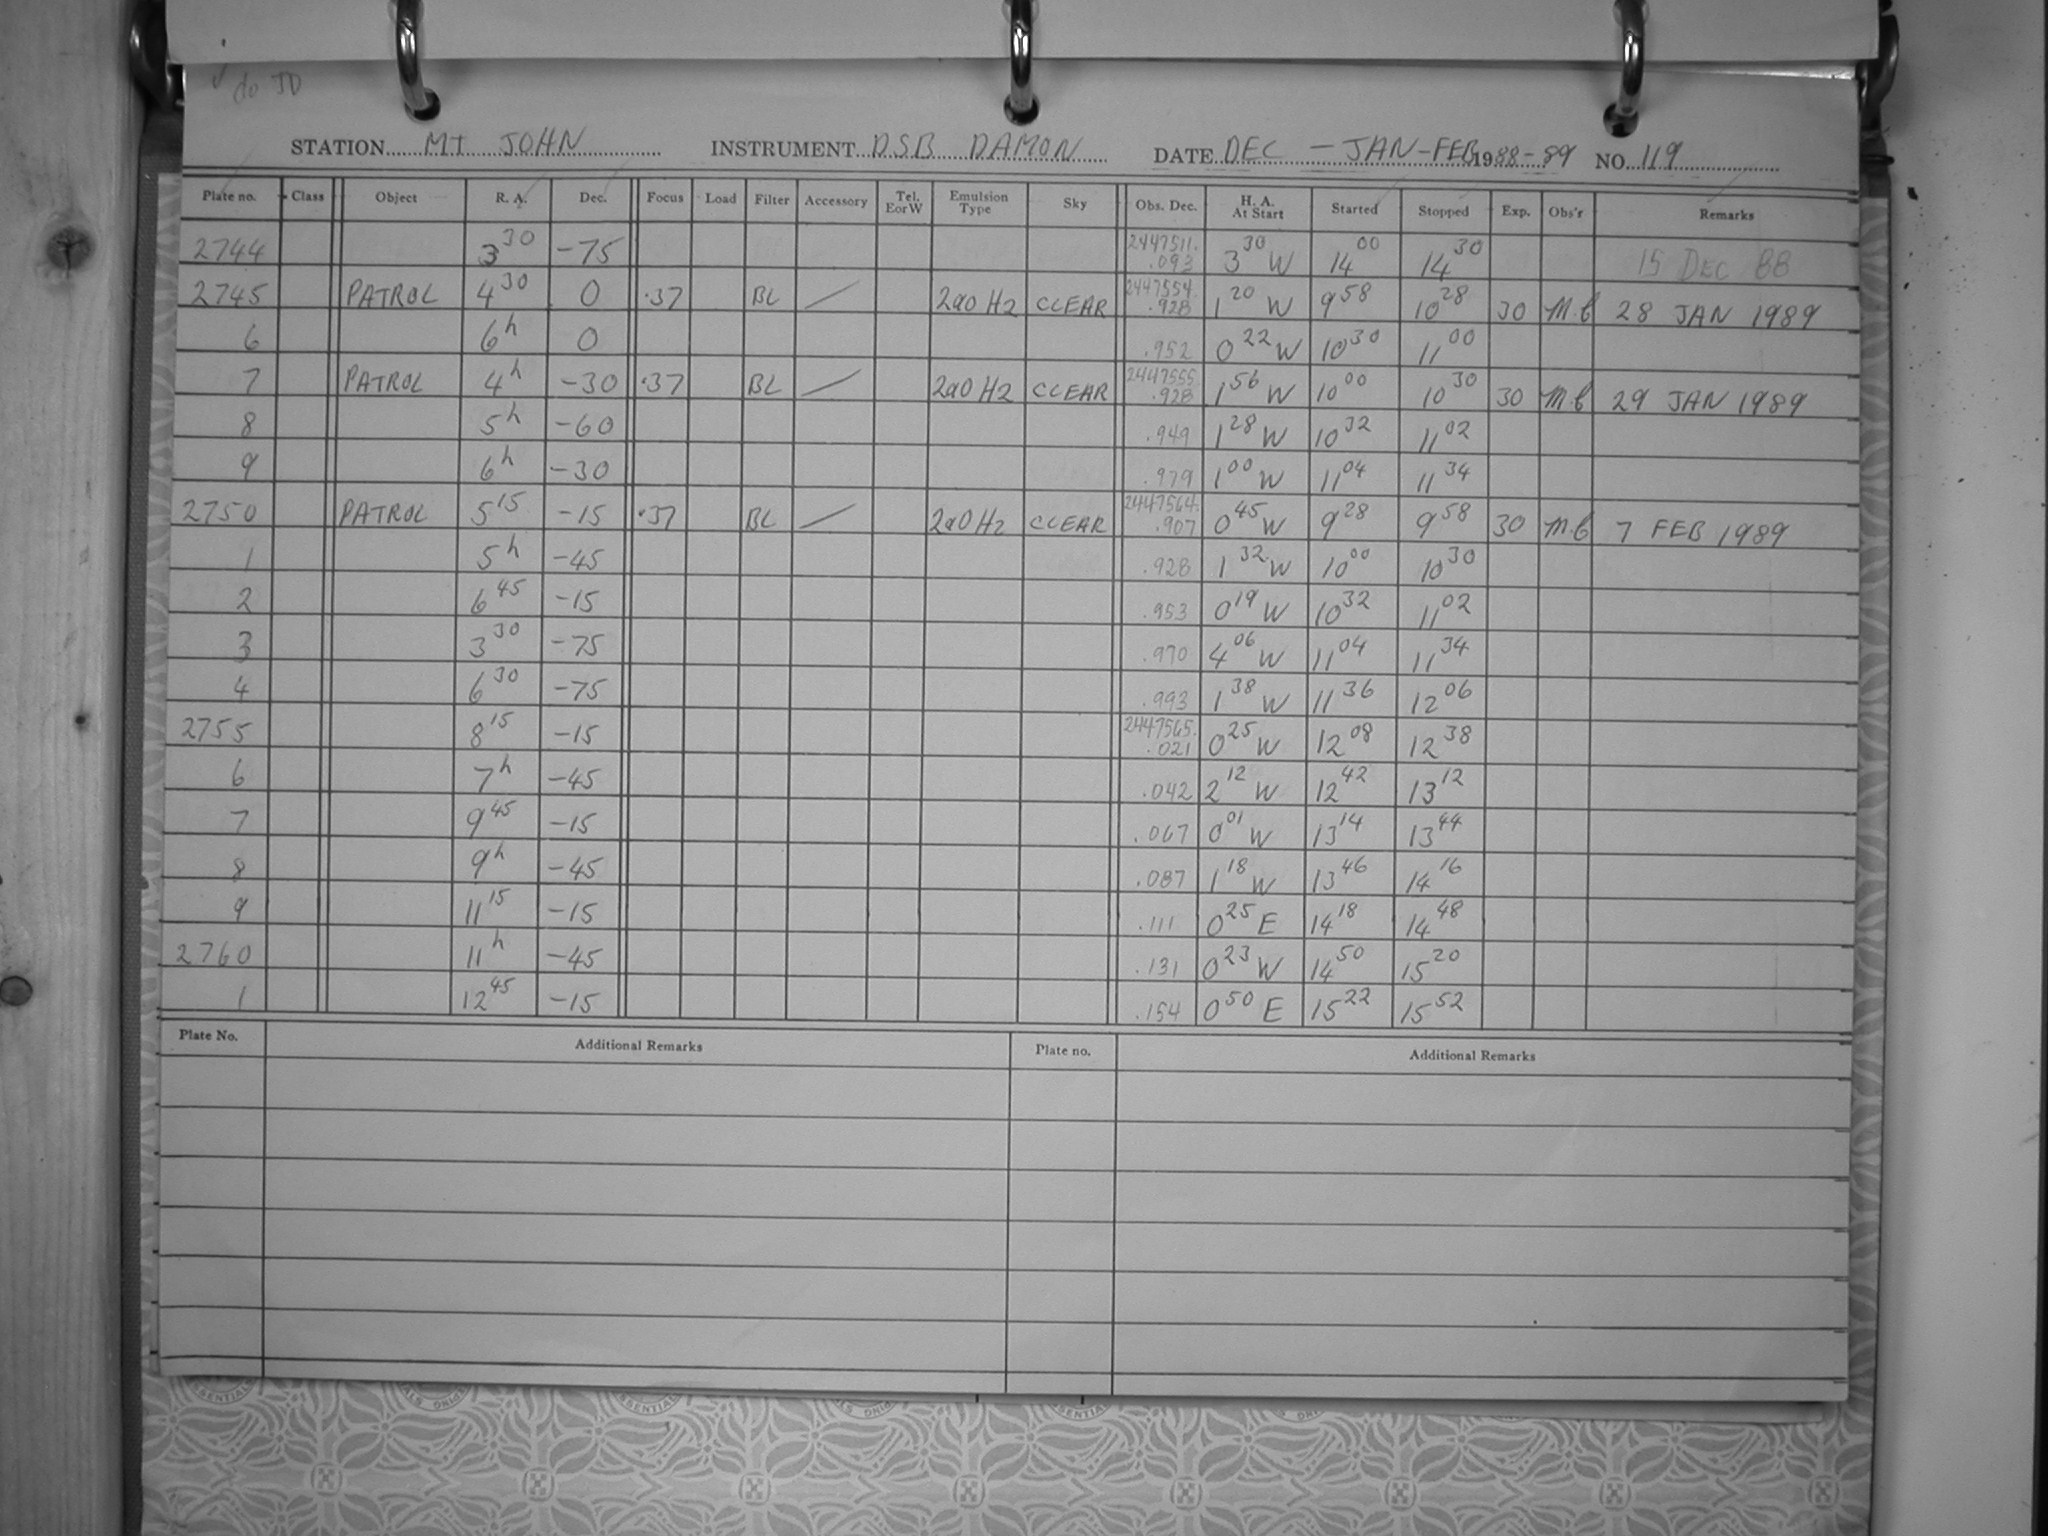 ✓ do JD
STATION MT JOHN INSTRUMENT DSB DAMON DATE DEC - JAN-FEB 1988-89 NO. 119
Plate no. Class Object R. A. Dec. Focus Load Filter Accessory Tel. E or W Emulsion Type Sky Obs. Dec. H. A. At Start Started Stopped Exp. Obs'r Remarks
2744 3 30 -75 2447511. .093 3 30 W 14 00 14 30 15 DEC 88
2745 PATROL 4 30 0 .37 BL / 2a0 H2 CLEAR 2447554. .928 1 20 W 9 58 10 28 30 M.C 28 JAN 1989
6 6h 0 .952 0 22 W 10 30 11 00
7 PATROL 4h -30 .37 BL / 2a0 H2 CLEAR 2447555 .928 1 56 W 10 00 10 30 30 M.C 29 JAN 1989
8 5h -60 .949 1 28 W 10 32 11 02
9 6h -30 .979 1 00 W 11 04 11 34
2750 PATROL 5 15 -15 .37 BL / 2a0 H2 CLEAR 2447564. .907 0 45 W 9 28 9 58 30 M.C 7 FEB 1989
1 5h -45 .928 1 32 W 10 00 10 30
2 6 45 -15 .953 0 19 W 10 32 11 02
3 3 30 -75 .970 4 06 W 11 04 11 34
4 6 30 -75 .993 1 38 W 11 36 12 06
2755 8 15 -15 2447565. .021 0 25 W 12 08 12 38
6 7h -45 .042 2 12 W 12 42 13 12
7 9 45 -15 .067 0 01 W 13 14 13 44
8 9h -45 .087 1 18 W 13 46 14 16
9 11 15 -15 .111 0 25 E 14 18 14 48
2760 11h -45 .131 0 23 W 14 50 15 20
1 12 45 -15 .154 0 50 E 15 22 15 52
Plate No. Additional Remarks Plate no. Additional Remarks